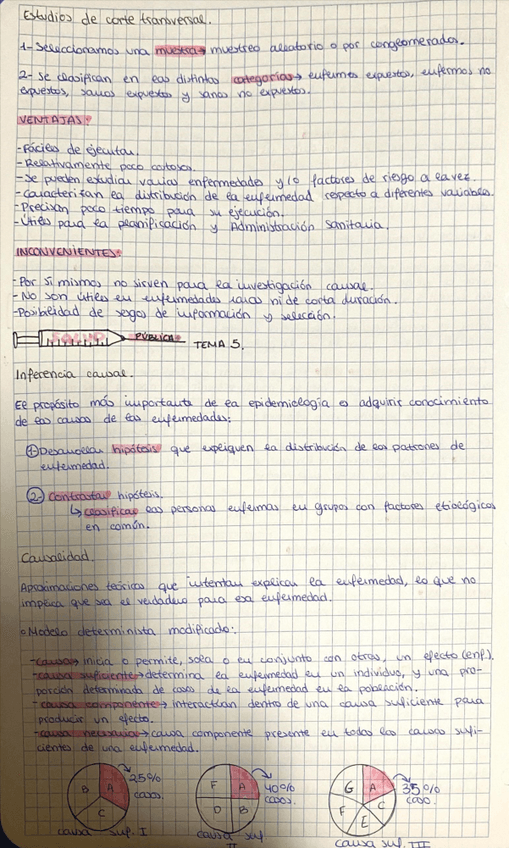 Estudios de corte transversal.
1- Seleccionamos una muestra → muestreo aleatorio o por conglomerados.
2- Se clasifican en las distintas categorías → enfermos expuestos, enfermos no
expuestos, sanos expuestos y sanos no expuestos.
VENTAJAS:
- Fáciles de ejecutar.
- Relativamente poco costosa.
- Se pueden estudiar varias enfermedades y/o factores de riesgo a la vez.
- Caracterizan la distribución de la enfermedad respecto a diferentes variables.
- Precisan poco tiempo para su ejecución.
- Útiles para la planificación y Administración Sanitaria.
INCONVENIENTES:
- Por sí mismos no sirven para la investigación causal.
- No son útiles en enfermedades raras ni de corta duración.
- Posibilidad de sesgos de información y selección.
SALUD PÚBLICA TEMA 5.
Inferencia causal.
El propósito más importante de la epidemiología es adquirir conocimiento
de las causas de las enfermedades:
1- Desarrollar hipótesis que expliquen la distribución de los patrones de
enfermedad.
2- Contrastar hipótesis.
↳ clasificar las personas enfermas en grupos con factores etiológicos
en común.
Causalidad.
Aproximaciones teóricas que intentan explicar la enfermedad, lo que no
implica que sea el verdadero para esa enfermedad.
• Modelo determinista modificado:
- causa → inicia o permite, sola o en conjunto con otros, un efecto (enf.).
- causa suficiente → determina la enfermedad en un individuo, y una pro-
porción determinada de casos de la enfermedad en la población.
- causa componente → interactúan dentro de una causa suficiente para
producir un efecto.
- causa necesaria → causa componente presente en todas las causas sufi-
cientes de una enfermedad.
B A C 25% casos.
F A D B 40% casos.
G A C E F 35% caso.
causa suf. I
causa suf II
causa suf. III